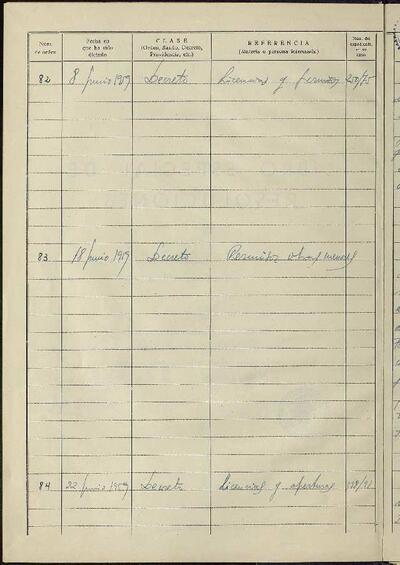 Núm. de orden | Fecha en que ha sido dictado | CLASE (Orden, Bando, Decreto, Providencia, etc.) | REFERENCIA (Materia o persona interesada) | Núm. de expediente en su caso
82 | 8 Junio 1959 | Decreto | Licencias y permisos
83 | 18 Junio 1959 | Decreto | Permisos obras menores
84 | 22 Junio 1959 | Decreto | Licencias y aperturas